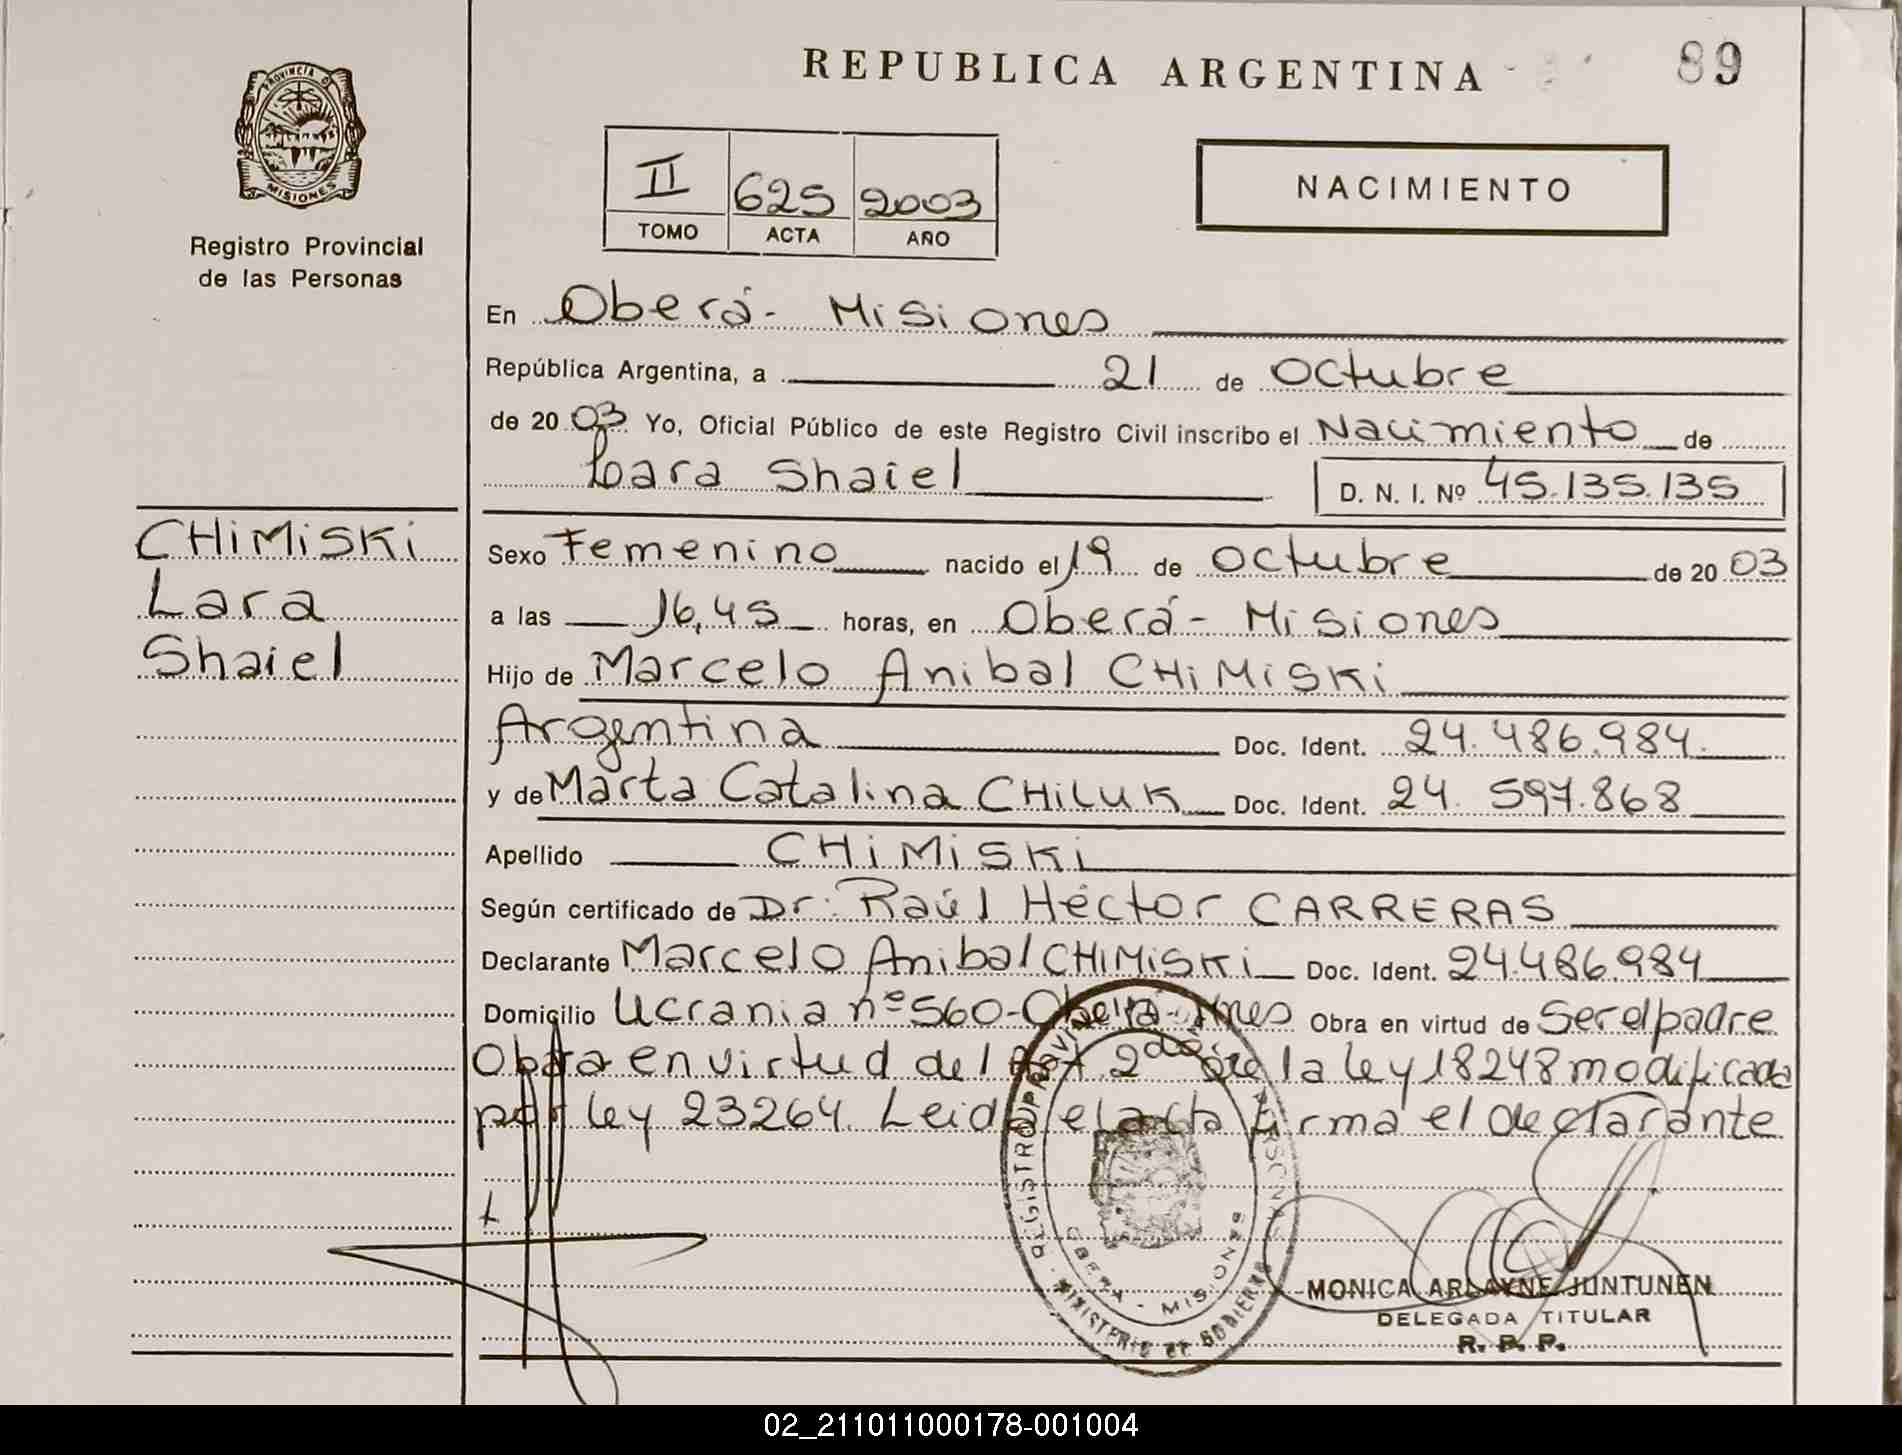 REPUBLICA ARGENTINA
89
PROVINCIA DE
MISIONES
Registro Provincial
de las Personas
II 625 2003
TOMO ACTA AÑO
NACIMIENTO
En Oberá - Misiones
República Argentina, a 21 de Octubre
de 2003 Yo, Oficial Público de este Registro Civil inscribo el Nacimiento de
Lara Shaiel D. N. I. Nº 45.135.135
CHiMiSKi
Lara
Shaiel
Sexo Femenino nacido el 19 de Octubre de 2003
a las 16,45 horas, en Oberá - Misiones
Hijo de Marcelo Anibal CHiMiSKi
Argentina Doc. Ident. 24.486.984.
y de Marta Catalina CHiLUK Doc. Ident. 24.597.868
Apellido CHiMiSKi
Según certificado de Dr: Raúl Héctor CARRERAS
Declarante Marcelo Anibal CHIMiSKi Doc. Ident. 24.486.984
Domicilio Ucrania nº 560 - Oberá - Mnes Obra en virtud de Ser el padre
Obra en virtud del Art 2do de la ley 18248 modificada
por ley 23264. Leida el acta firma el declarante
REGISTRO PROVINCIAL DE LAS PERSONAS
OBERA - MISIONES
MINISTERIO DE GOBIERNO
MONICA ARLAYNE JUNTUNEN
DELEGADA TITULAR
R. P. P.
02_211011000178-001004